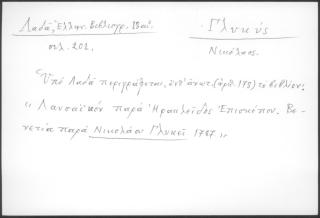 Λαδᾶ, Ἑλλην. Βιβλιογρ. 18 αἰ.
σελ. 202.
Γλυκύς
Νικόλαος.
Ὑπό Λαδᾶ περιγράφεται, ὑπ' ἀριθ. (ἀριθ. 175) τό βιβλίον:
"Λαυσαϊκόν παρά Ἡρακλείδος Ἐπισκόπου. Βε-
νετία παρά Νικολάῳ Γλυκεῖ 1787"